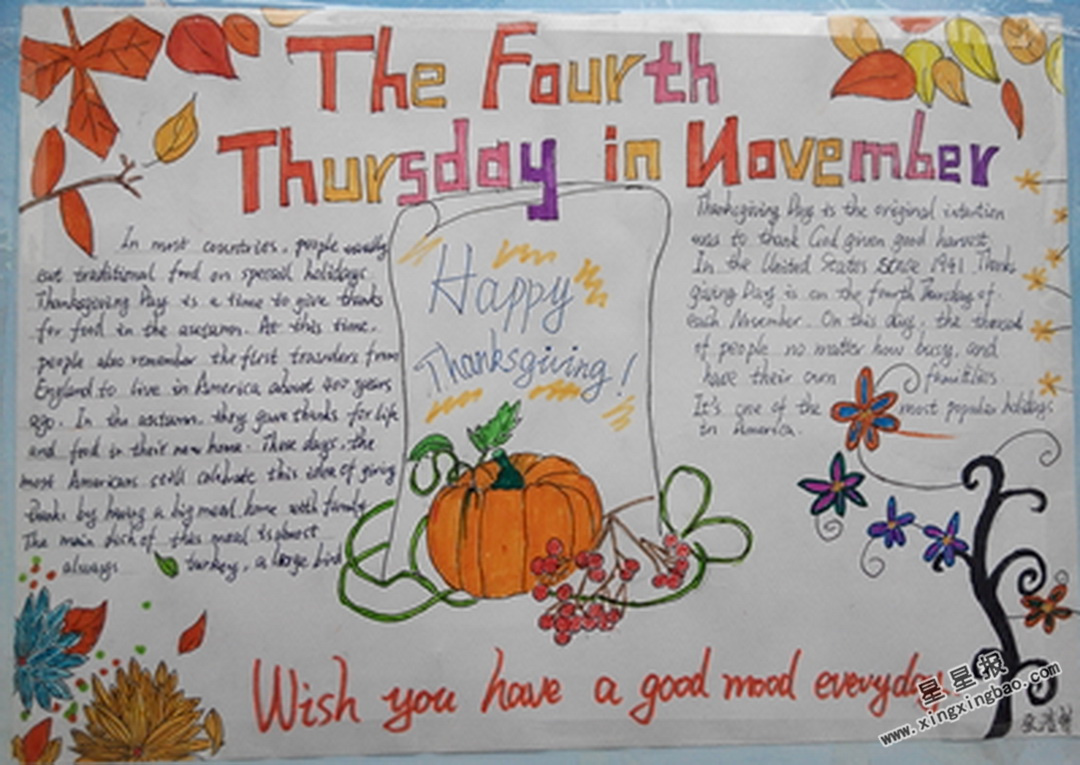 The Fourth
Thursday in November
In most countries, people usually
eat traditional food on special holidays
Thanksgiving Day is a time to give thanks
for food in the autumn. At this time,
people also remember the first travelers from
England to live in America about 400 years
ago. In the autumn, they gave thanks for life
and food in their new home. These days, the
most Americans still celebrate this idea of giving
thanks by having a big meal home with family
The main dish of this meal is almost
always turkey, a large bird
Happy
Thanksgiving!
Thanksgiving Day is the original intention
was to thank God given good harvest
In the United States since 1941 Thanks
giving Day is on the fourth Thursday of
each November. On this day, the thousd
of people no matter how busy, and
have their own families
It's one of the most popular holidays
in America.
Wish you have a good mood everyday!
星星报
www.xingxingbao.com